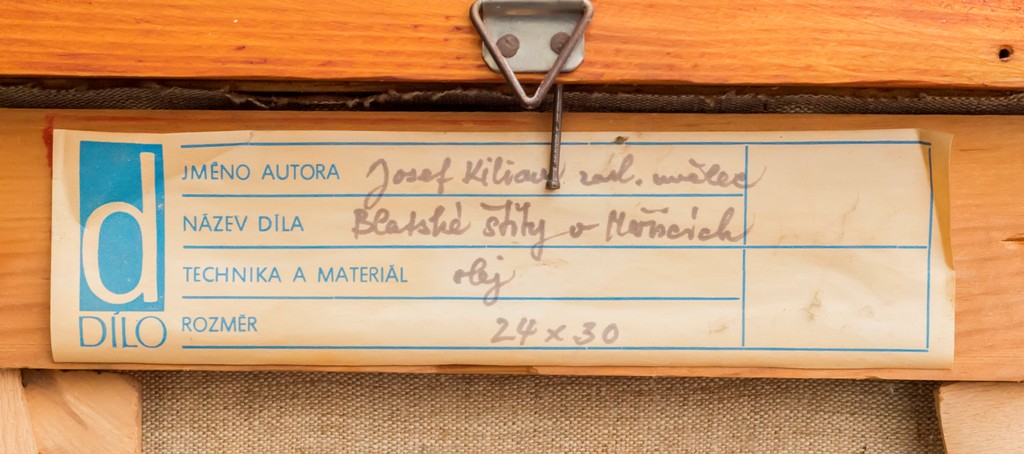 d
DÍLO
JMÉNO AUTORA Josef Kilian zasl. umělec
NÁZEV DÍLA Blatské štíty v
TECHNIKA A MATERIÁL olej
ROZMĚR 24 x 30